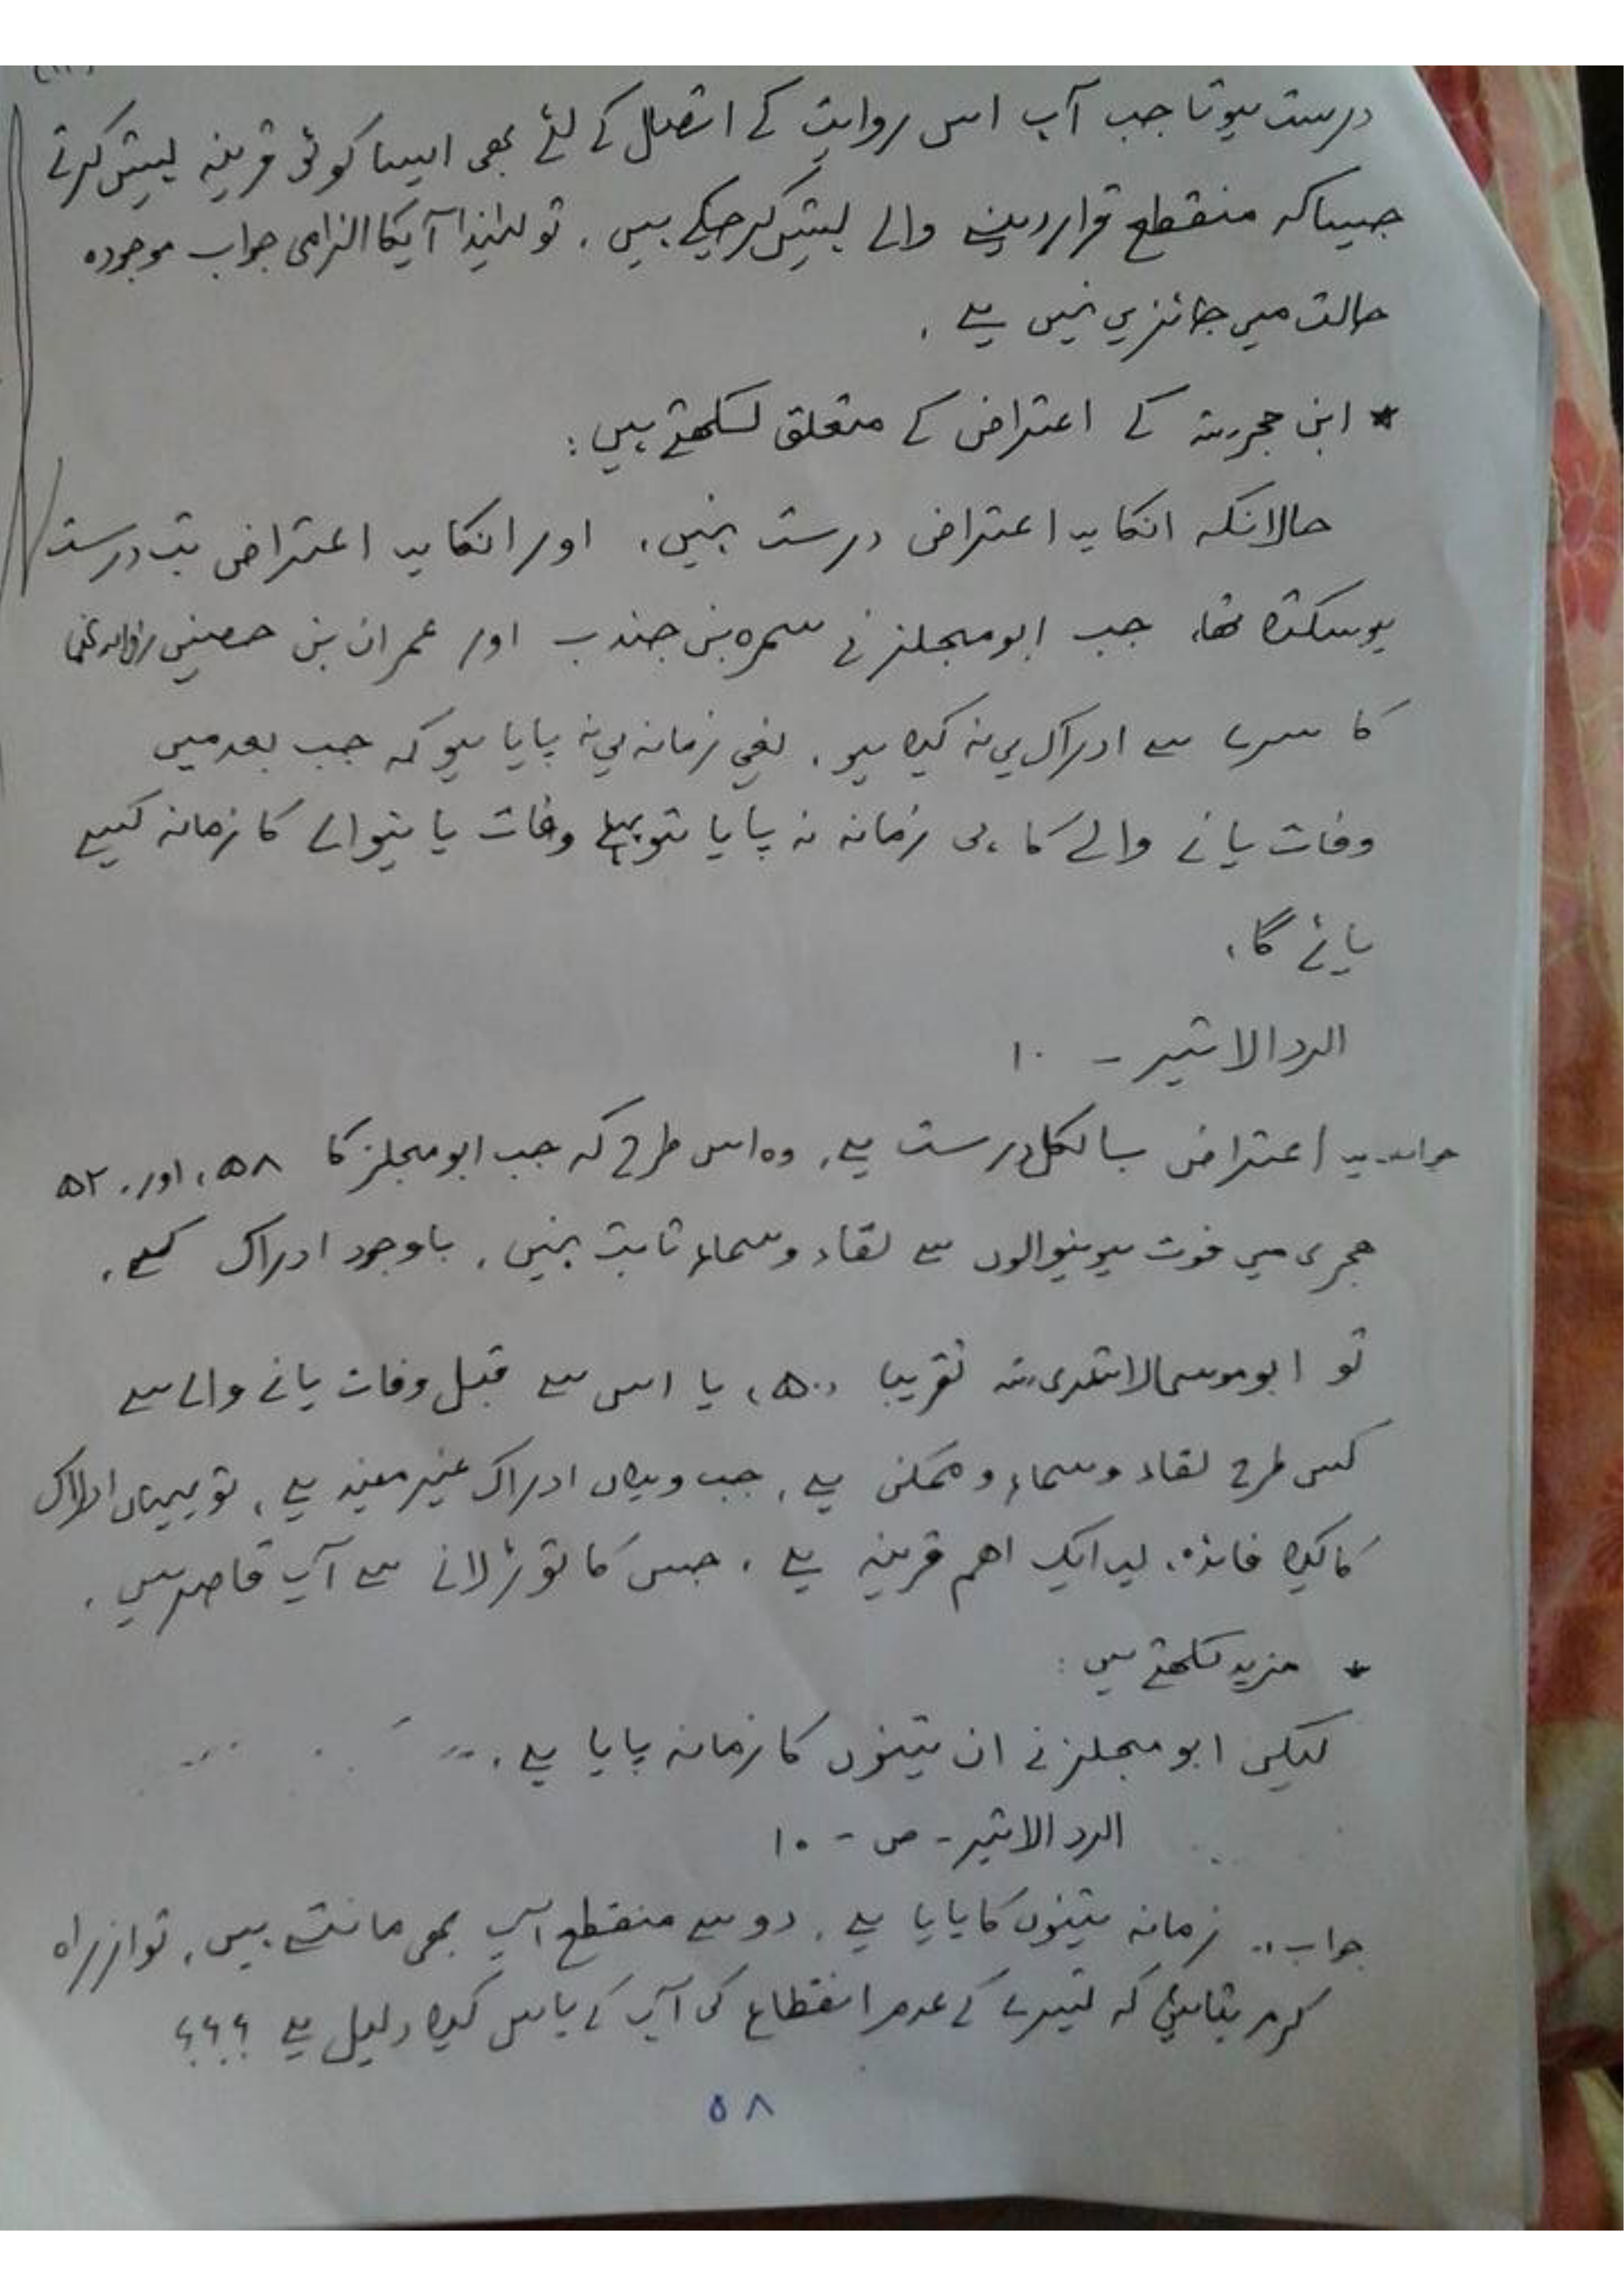 درست ہوتا جب آپ اس روایت کے اتصال کے لئے بھی ایسا کوئی قرینہ پیش کرتے
جیسا کہ منقطع قرار دینے والے پیش کر چکے ہیں. تو لہٰذا آپکا الزامی جواب موجودہ
حالت میں جائز ہی نہیں ہے.
* ابن حجر رحمہ کے اعتراض کے متعلق لکھتے ہیں:
حالانکہ انکا یہ اعتراض درست نہیں، اور انکا یہ اعتراض تب درست
ہو سکتا تھا، جب ابو مجلز نے سمرہ بن جندب اور عمران بن حصین رضی اللہ عنہما
کا سرے سے ادراک ہی نہ کیا ہو. یعنی زمانہ ہی نہ پایا ہو کہ جب بعد میں
وفات پانے والے کا ہی زمانہ نہ پایا تو پہلے وفات پانیوالے کا زمانہ کیسے
پائے گا،
الرد الاثیر - ۱۰
جواب.. یہ اعتراض بالکل درست ہے، وہ اس طرح کہ جب ابو مجلز کا ۵۸، اور، ۵۲
ھجری میں فوت ہونیوالوں سے لقاء و سماع ثابت نہیں، باوجود ادراک کے،
تو ابو موسیٰ الاشعری رضہ تقریبا، ۵۰، یا اس سے قبل وفات پانے والے سے
کس طرح لقاء و سماع ممکن ہے، جب وہاں ادراک غیر مفید ہے، تو یہاں ادراک
کا کیا فائدہ، یہ ایک اھم قرینہ ہے، جس کا توڑ لانے سے آپ قاصر ہیں.
* مزید لکھتے ہیں:
لیکن ابو مجلز نے ان تینوں کا زمانہ پایا ہے.
الرد الاثیر - ص - ۱۰
جواب.. زمانہ تینوں کا پایا ہے، دو سے منقطع آپ بھی مانتے ہیں، تو از راہ
کرم بتائیں کہ تیسرے کے عدم انقطاع کی آپ کے پاس کیا دلیل ہے ؟؟؟
۵۸